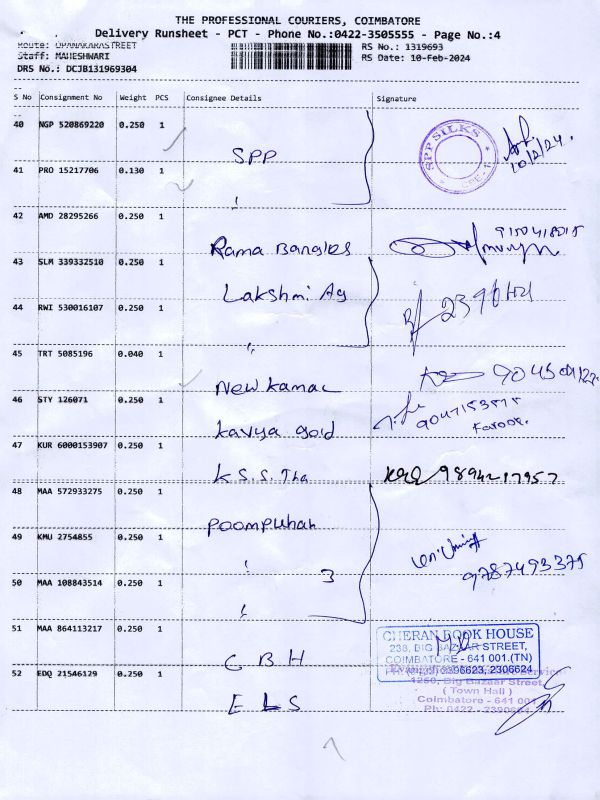 THE PROFESSIONAL COURIERS, COIMBATORE
Delivery Runsheet - PCT - Phone No.:0422-3505555 - Page No.:4
Route: OPANAKARASTREET
RS No.: 1319693
Staff: MAHESHWARI
RS Date: 10-Feb-2024
DRS No.: DCJB131969304
S No Consignment No Weight PCS Consignee Details Signature
40 NGP 520869220 0.250 1
SPP
SPP SILKS
CBE-1
10/2/24.
41 PRO 15217706 0.130 1
42 AMD 28295266 0.250 1
Rama Bangles
43 SLM 339332510 0.250 1
Lakshmi Ag
44 RWI 530016107 0.250 1
45 TRT 5085196 0.040 1
New Kamal
46 STY 126071 0.250 1
Kavya gold
9047153575
Farook.
47 KUR 6000153907 0.250 1
K S. S. Tha
48 MAA 572933275 0.250 1
Poompuhar
49 KMU 2754855 0.250 1
9787493375
50 MAA 108843514 0.250 1
3
51 MAA 864113217 0.250 1
G B H
CHERAN BOOK HOUSE
238, BIG BAZAAR STREET,
COIMBATORE - 641 001.(TN)
2396623, 2306624
52 EDQ 21546129 0.250 1
E L S
1250, Big Bazaar Street
( Town Hall )
Coimbatore - 641 001
Ph: 0422 -